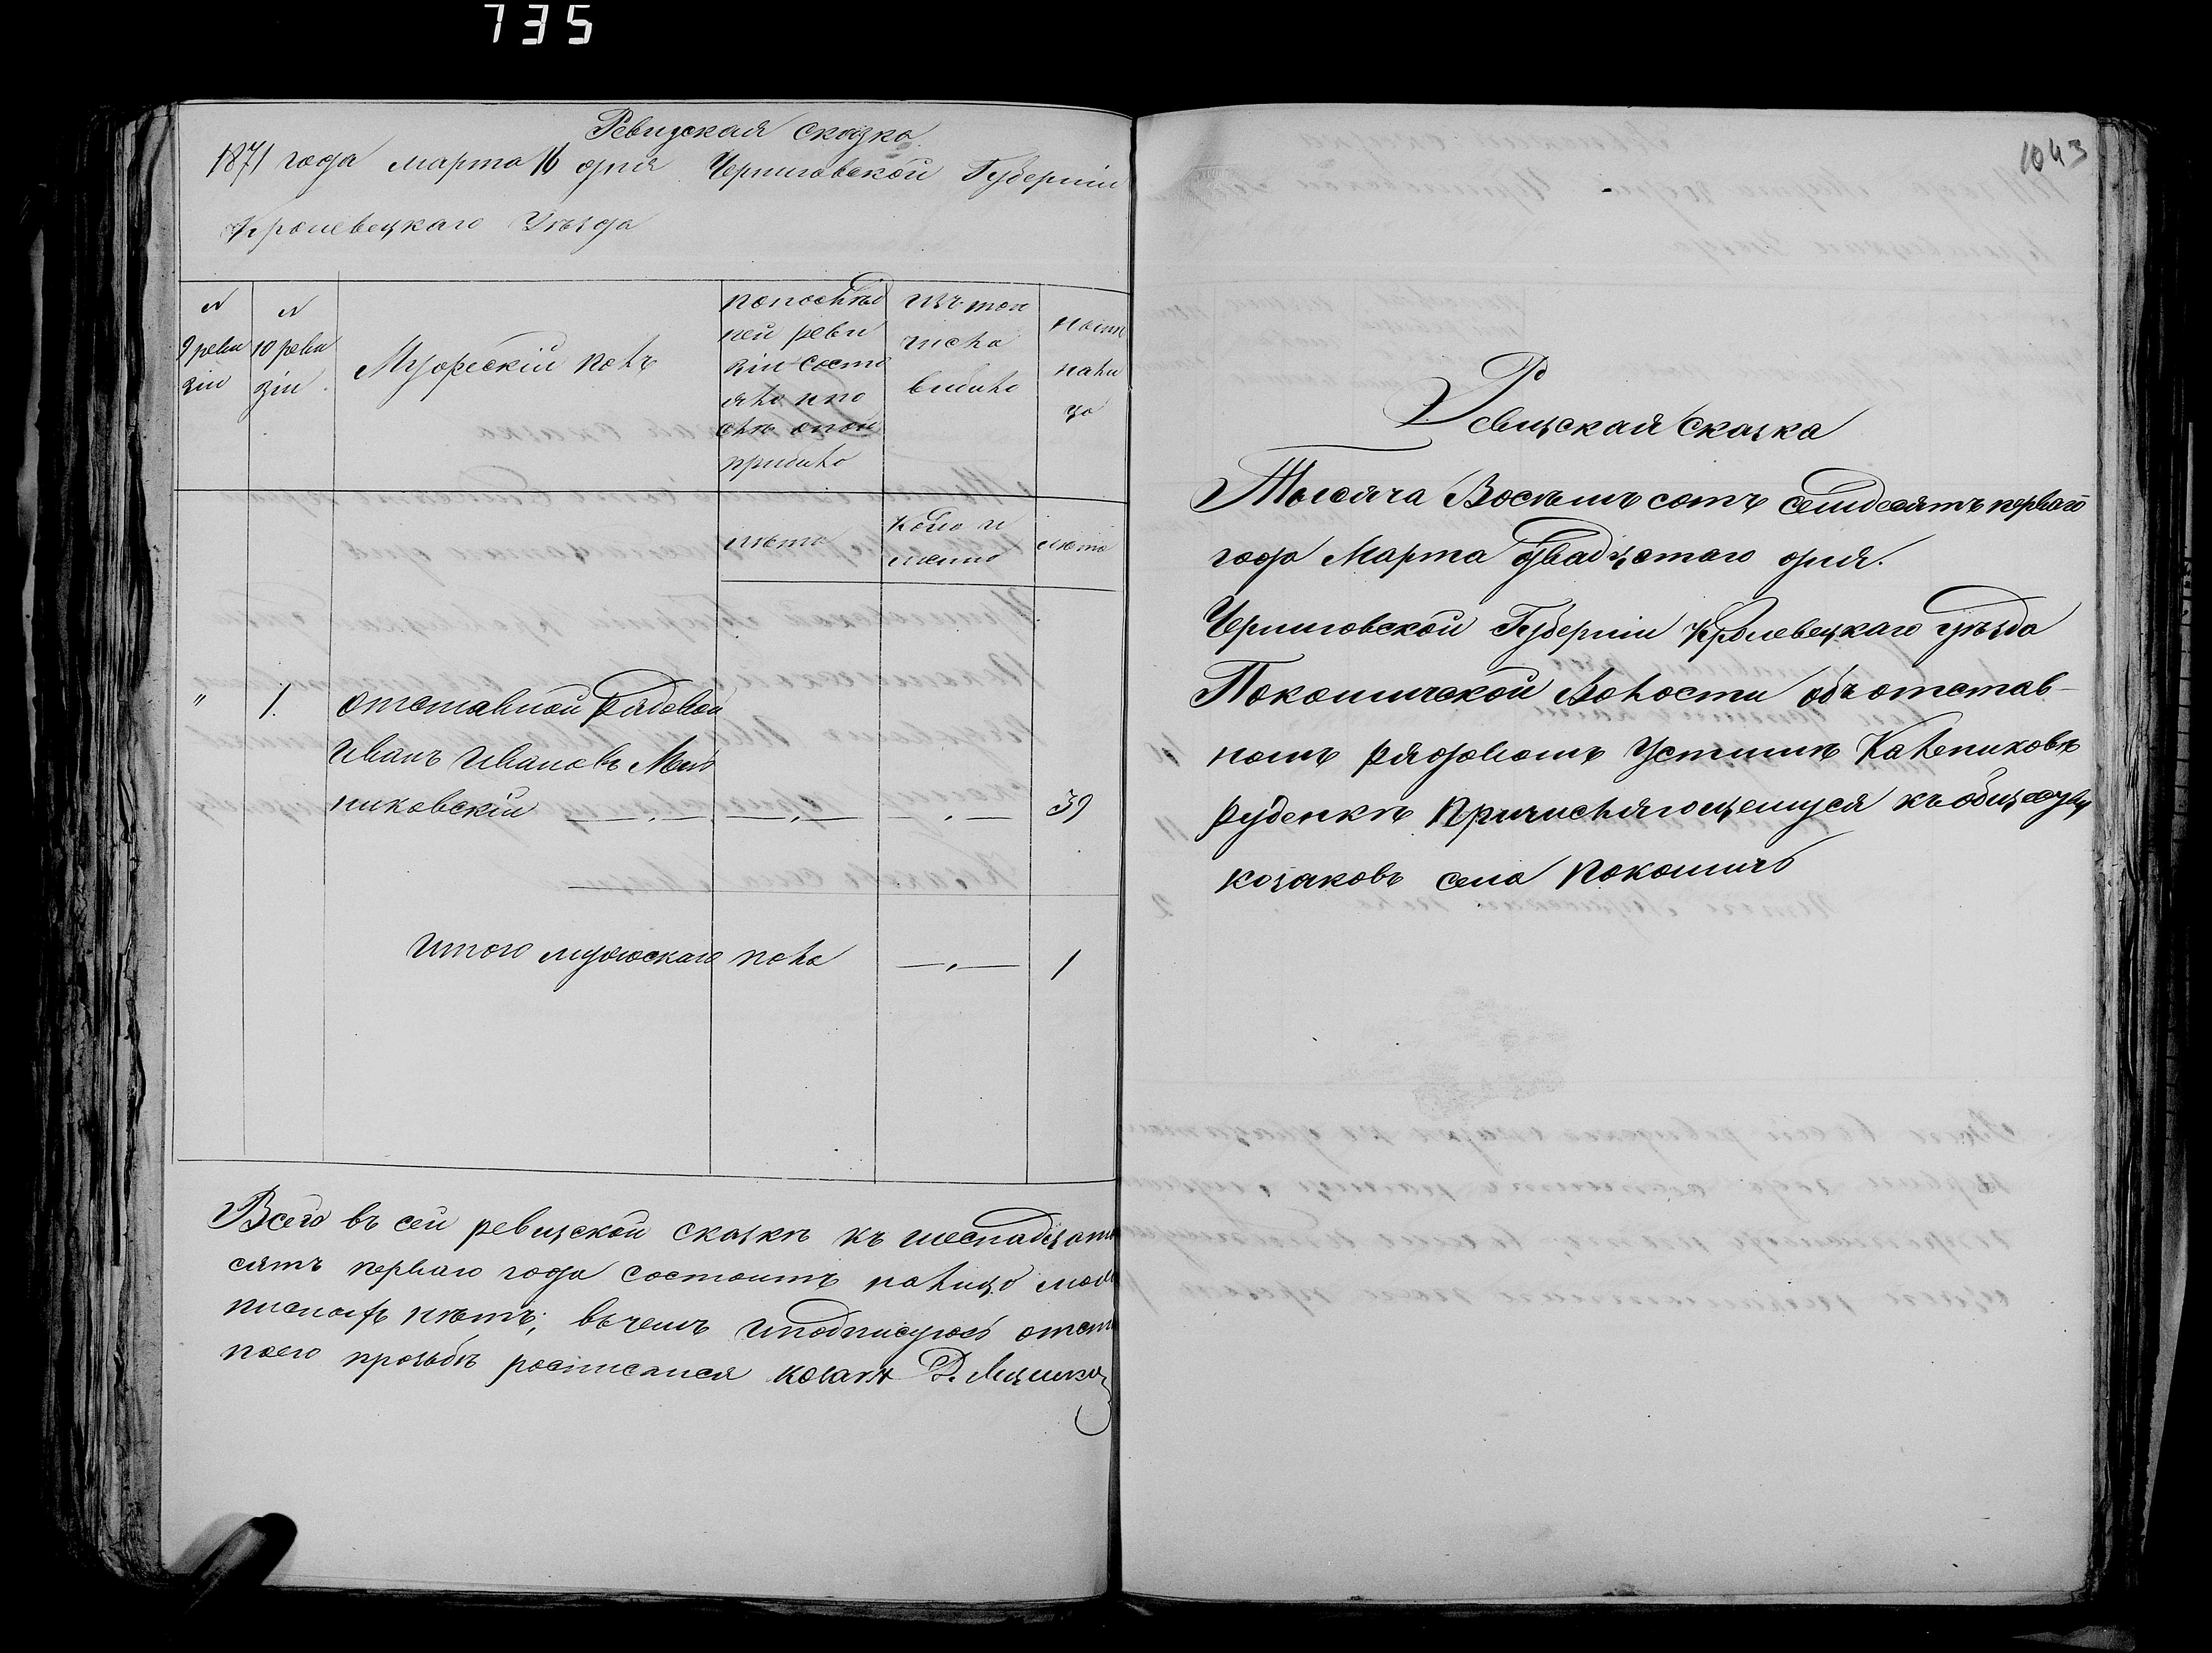 735
Ревизская сказка
1871 года марта 16 дня Черниговской Губерніи
Кролевецкаго Уѣзда
№ 9 реви зіи
№ 10 реви зіи
Мужескій полъ
по послѣд
ней реви
зіи состо
яло и по
слѣ оной
прибыло
изъ того
числа
выбыло
нынѣ
налицо
лѣта
Когда и
менно
лѣта
" 1. отставной Рядовой
Иванъ Ивановъ
никовскій —„— —„— „— 39
Итого мужескаго пола —„— 1
Всего въ сей ревизской сказкѣ къ шеснадцато
сятъ перваго года состоитъ на лицо
нѣтъ; въ чемъ и подписуюсъ отст
ного прозьбѣ росписался козакъ
1043
Ревизская Сказка
Тысяча Восѣмъ сотъ семдесятъ перваго
года Марта двадцатаго дня.
Черниговской Губерніи Кролевецкаго уѣзда
Покошичской Волости объ отстав-
номъ рядовомъ Устимѣ Калениковѣ
Руденкѣ причисляющемуся къ обществу
козаковъ села Покошичъ